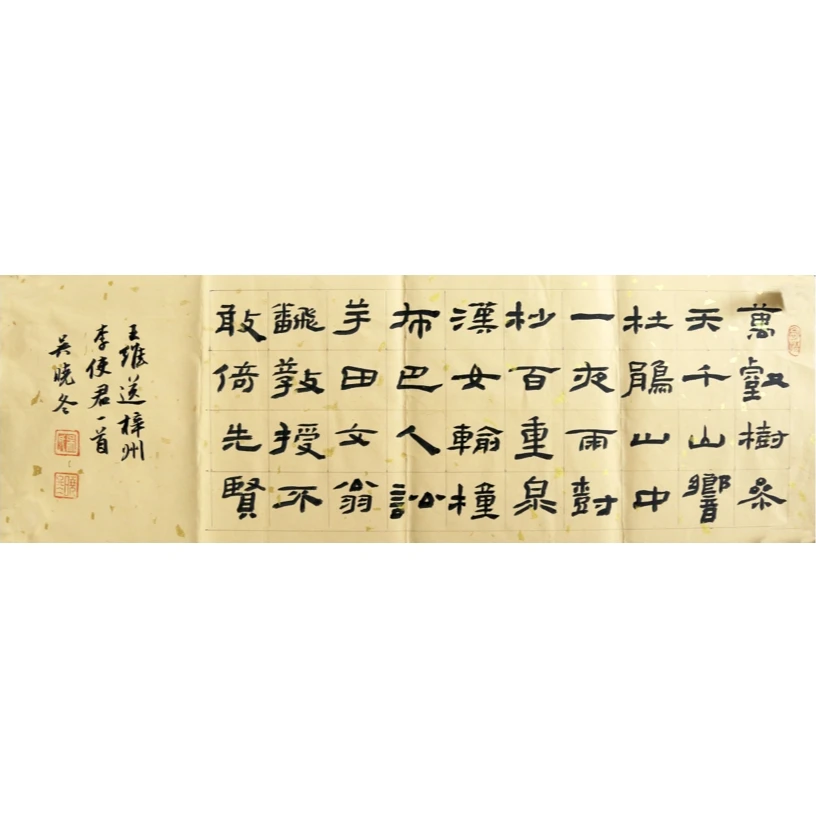 萬壑樹參
天千山響
杜鵑山中
一夜雨樹
杪百重泉
漢女輸橦
布巴人訟
芋田文翁
飜教授不
敢倚先賢
王維送梓州
李使君一首
吴晓冬